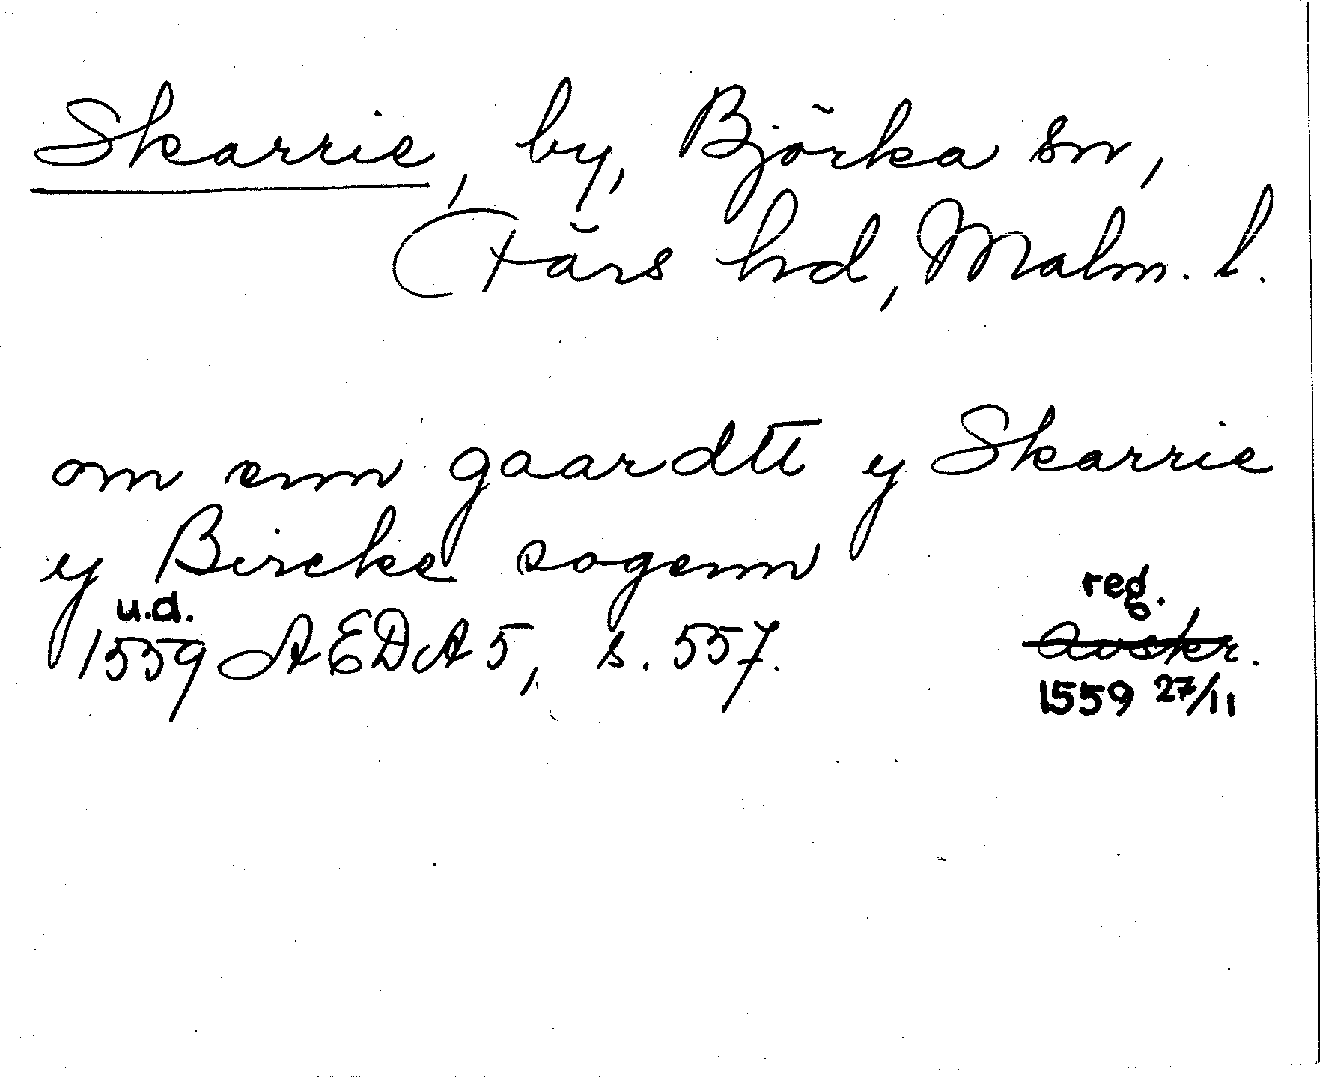 Skarrie, by, Björka sn,
Färs hd, Malm. l.
om enn gaardtt y Skarrie
y Bircke sogenn
u.d.
1559 AEDA 5, s. 557.
reg.
Avskr.
1559 27/11